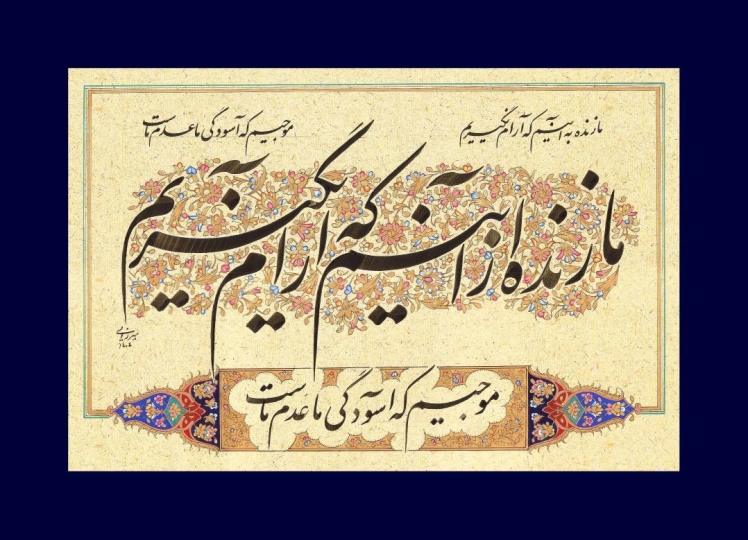 ما زنده به آنیم که آرام نگیریم
موجیم که آسودگی ما عدم ماست
ما زنده از آنیم که آرام نگیریم
موجیم که آسودگی ما عدم ماست